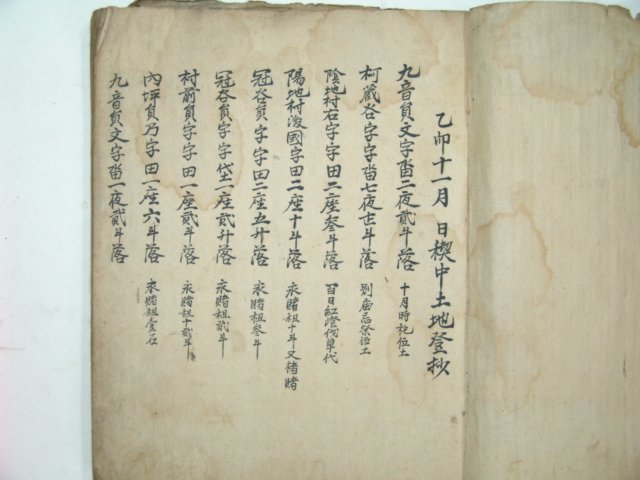 乙卯十一月 日稧中土地登抄
九音員文字畓二夜貳斗落 十月時祀位土
柯蔵谷字字畓七夜古斗落 別庙忌祭位土
陰地村右字字田二座叁斗落 百日紅澄伐草代
陽地村後國字田二座十斗落 永賭租十斗又楮賭
冠谷員字字田二座五升落 永賭租叁斗
冠谷員字字垈一座貳升落 永賭租貳斗
村前員字字田一座貳斗落 永賭租十貳斗
內坪員乃字田一座六斗落 永賭租壹石
九音員文字畓一夜貳斗落